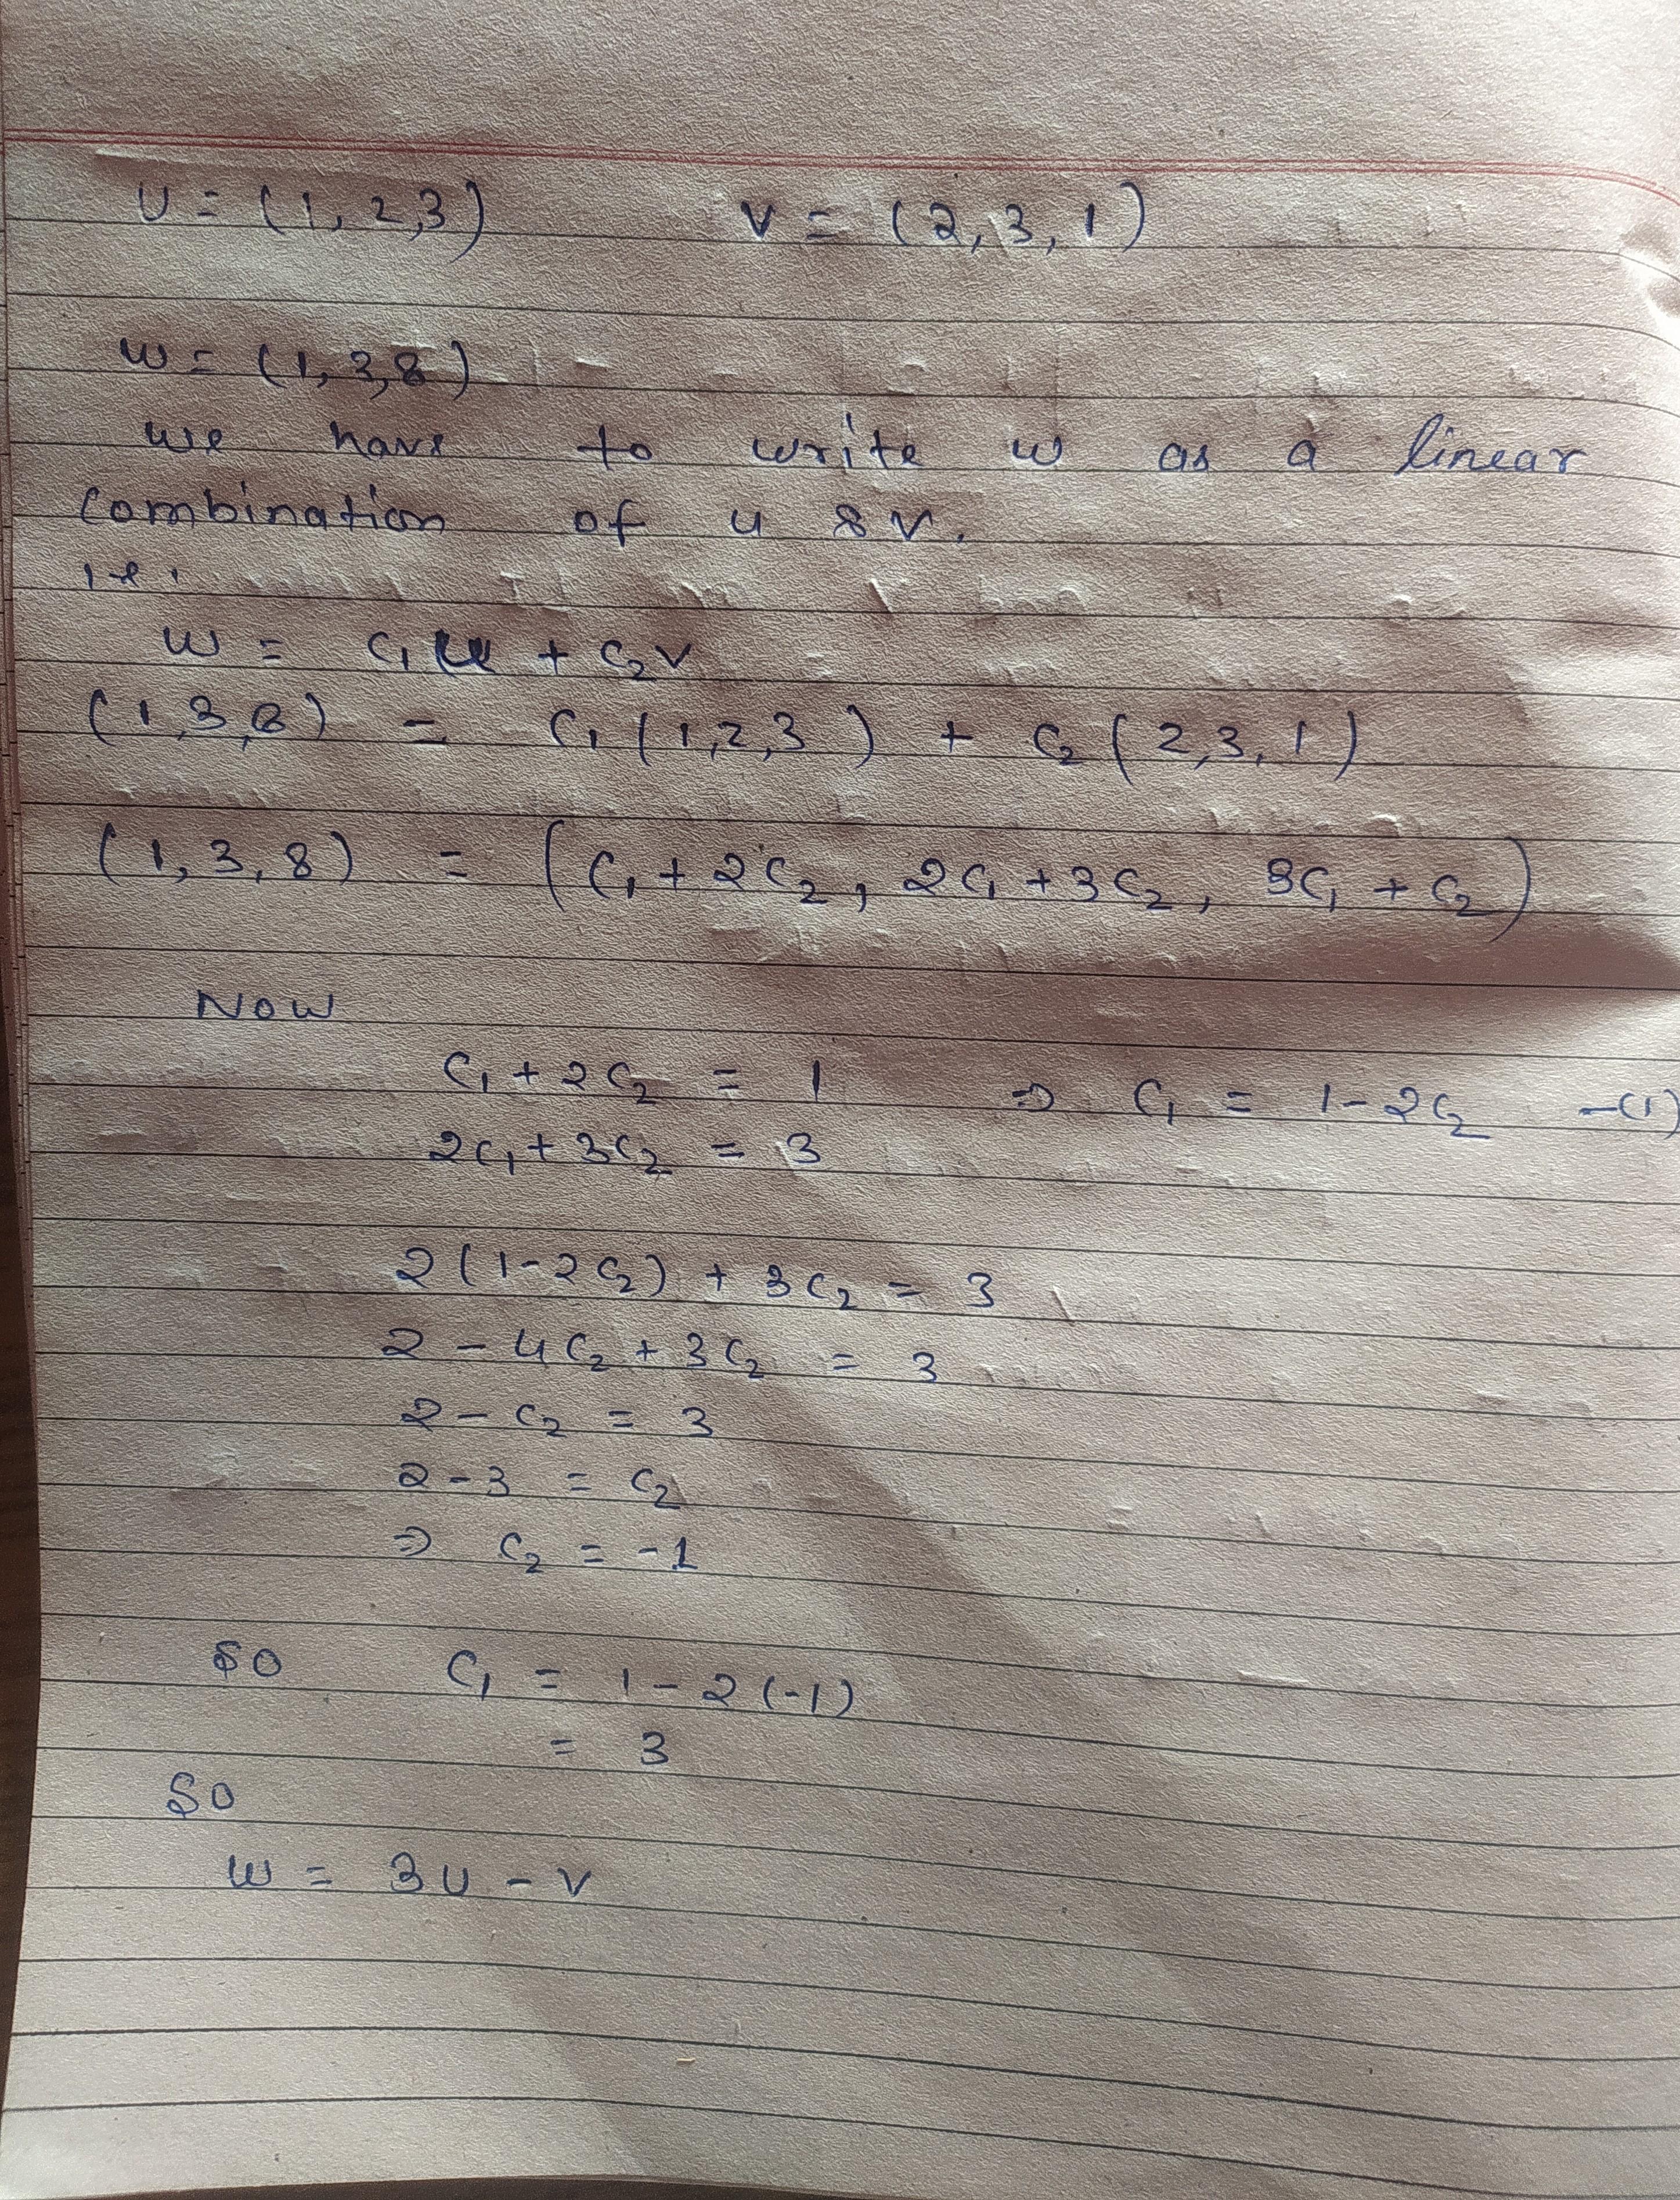 U = (1, 2, 3) V = (2, 3, 1)
w = (1, 3, 8)
we have to write w as a linear
combination of u & v.
i.e.
w = c₁u + c₂v
(1, 3, 8) = c₁(1, 2, 3) + c₂(2, 3, 1)
(1, 3, 8) = (c₁ + 2c₂, 2c₁ + 3c₂, 3c₁ + c₂)
NOW
c₁ + 2c₂ = 1 ⇒ c₁ = 1 - 2c₂ —(1)
2c₁ + 3c₂ = 3
2(1 - 2c₂) + 3c₂ = 3
2 - 4c₂ + 3c₂ = 3
2 - c₂ = 3
2 - 3 = c₂
⇒ c₂ = -1
SO c₁ = 1 - 2(-1)
= 3
SO
w = 3U - V